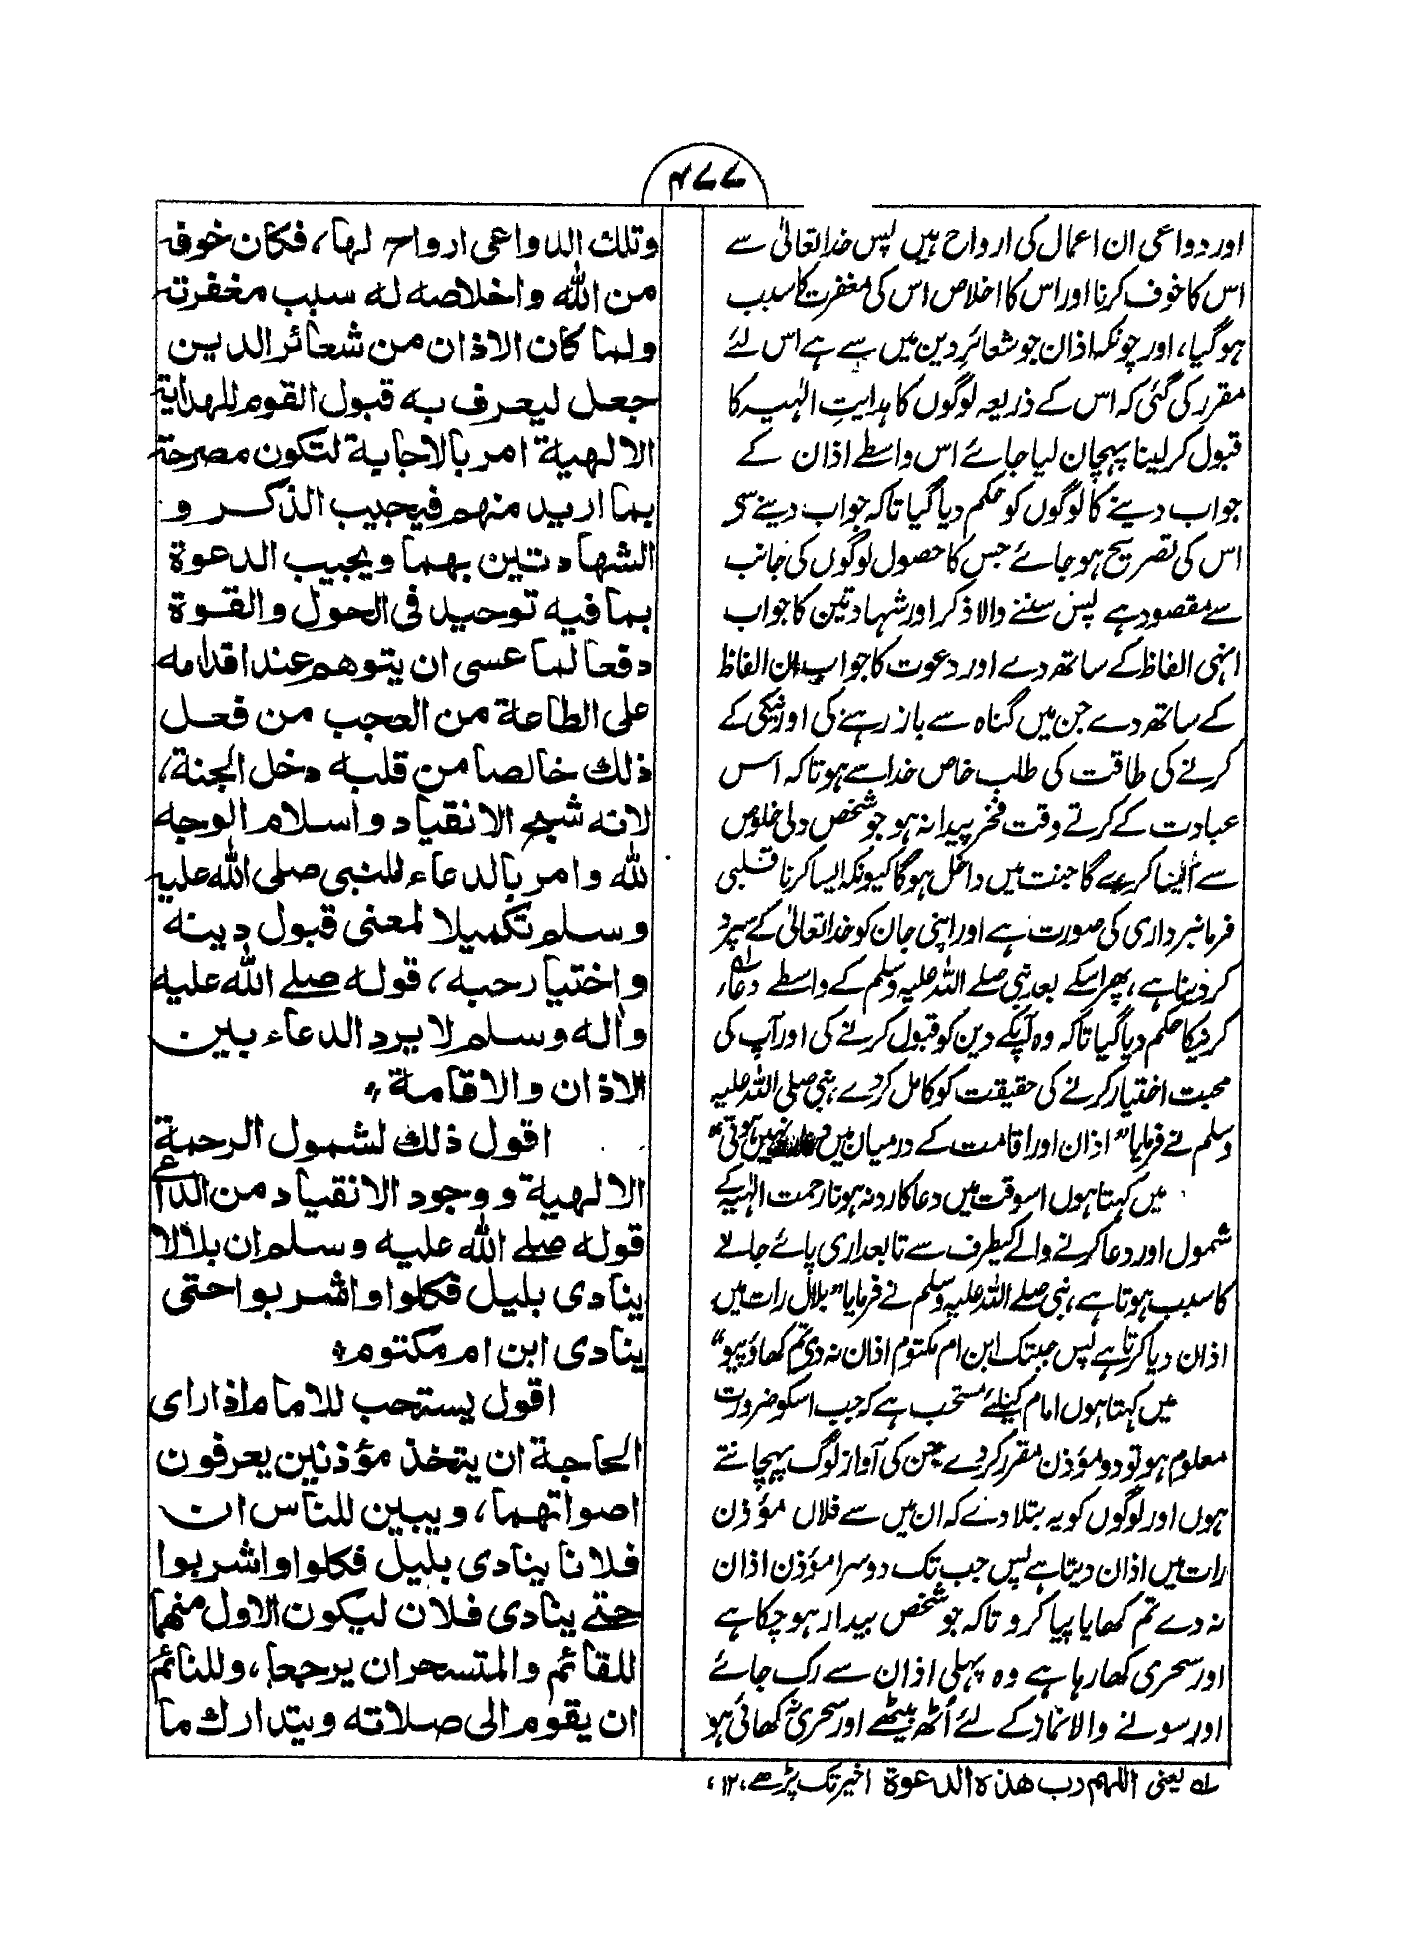 ۴۷۷
اور دواعی ان اعمال کی ارواح ہیں پس خدا تعالیٰ سے
اس کا خوف کرنا اور اس کا اخلاص اس کی مغفرت کا سبب
ہو گیا، اور چونکہ اذان جو شعائرِ دین میں سے ہے اس لئے
مقرر کی گئی کہ اس کے ذریعہ لوگوں کا ہدایتِ الٰہیہ کا
قبول کر لینا پہچان لیا جائے اس واسطے اذان کے
جواب دینے کا لوگوں کو حکم دیا گیا تاکہ جواب دینے سے
اس کی تصریح ہو جائے جس کا حصول لوگوں کی جانب
سے مقصود ہے پس سننے والا ذکر اور شہادتین کا جواب
انہی الفاظ کے ساتھ دے اور دعوت کا جواب ان الفاظ
کے ساتھ دے جن میں گناہ سے باز رہنے کی اور نیکی کے
کرنے کی طاقت کی طلب خاص خدا سے ہو تاکہ اس
عبادت کے کرتے وقت فخر پیدا نہ ہو جو شخص دلی خلوص
سے ایسا کرے گا جنت میں داخل ہوگا کیونکہ ایسا کرنا قلبی
فرمانبرداری کی صورت ہے اور اپنی جان کو خدا تعالیٰ کے سپرد
کر دینا ہے، پھر اسکے بعد نبی صلے اللہ علیہ وسلم کے واسطے دعاء
کرنیکا حکم دیا گیا تاکہ وہ آپکے دین کو قبول کرنے کی اور آپ کی
محبت اختیار کرنے کی حقیقت کو کامل کردے، نبی صلی اللہ علیہ
وسلم نے فرمایا "اذان اور اقامت کے درمیان میں نہیں ہوتی"
میں کہتا ہوں اسوقت میں دعا کا رد نہ ہونا رحمت الٰہیہ کے
شمول اور دعا کرنے والے کیطرف سے تابعداری پائے جانے
کا سبب ہوتا ہے، نبی صلے اللہ علیہ وسلم نے فرمایا "بلال رات میں
اذان دیا کرتا ہے پس جبتک ابن ام مکتوم اذان نہ دیں تم کھاؤ پیو"
میں کہتا ہوں امام کیلئے مستحب ہے کہ جب اسکو ضرورت
معلوم ہو تو دو مؤذن مقرر کردے جن کی آواز لوگ پہچانتے
ہوں اور لوگوں کو یہ بتلا دے کہ ان میں سے فلاں مؤذن
رات میں اذان دیتا ہے پس جب تک دوسرا مؤذن اذان
نہ دے تم کھایا پیا کرو تاکہ جو شخص بیدار ہو چکا ہے
اور سحری کھا رہا ہے وہ پہلی اذان سے رک جائے
اور سونے والا نماز کے لئے اُٹھ بیٹھے اور سحری نہ کھائی ہو
لہ یعنی اللہم رب ھذہ الدعوۃ اخیر تک پڑھے، ۱۲،
وتلك الدواعی ارواح لہا، فکان خوفہ
من اللہ واخلاصہ لہ سبب مغفرتہ
ولما کان الاذان من شعائر الدین
جعل لیعرف بہ قبول القوم للہدایۃ
الالہیۃ امر بالاجابۃ لتکون مصرحۃ
بما ارید منہم فیجیب الذکر و
الشہادتین بہما ویجیب الدعوۃ
بما فیہ توحید فی الحول والقوۃ
دفعا لما عسی ان یتوھم عند اقدامہ
علی الطاعۃ من العجب من فعل
ذلك خالصا من قلبہ دخل الجنۃ،
لانہ شبح الانقیاد واسلام الوجہ
للہ وامر بالدعاء للنبی صلی اللہ علیہ
وسلم تکمیلا لمعنی قبول دینہ
واختیار حبہ، قولہ صلے اللہ علیہ
وآلہ وسلم لا یرد الدعاء بین
الاذان والاقامۃ،
اقول ذلك لشمول الرحمۃ
الالہیۃ ووجود الانقیاد من الداعی
قولہ صلے اللہ علیہ وسلم ان بلالا
ینادی بلیل فکلوا واشربوا حتی
ینادی ابن ام مکتوم،
اقول یستحب للامام اذا رای
الحاجۃ ان یتخذ مؤذنین یعرفون
اصواتہما، ویبین للناس ان
فلانا ینادی بلیل فکلوا واشربوا
حتے ینادی فلان لیکون الاول منہما
للقائم والمتسحر ان یرجعا، وللنائم
ان یقوم الی صلاتہ ویتدارك ما